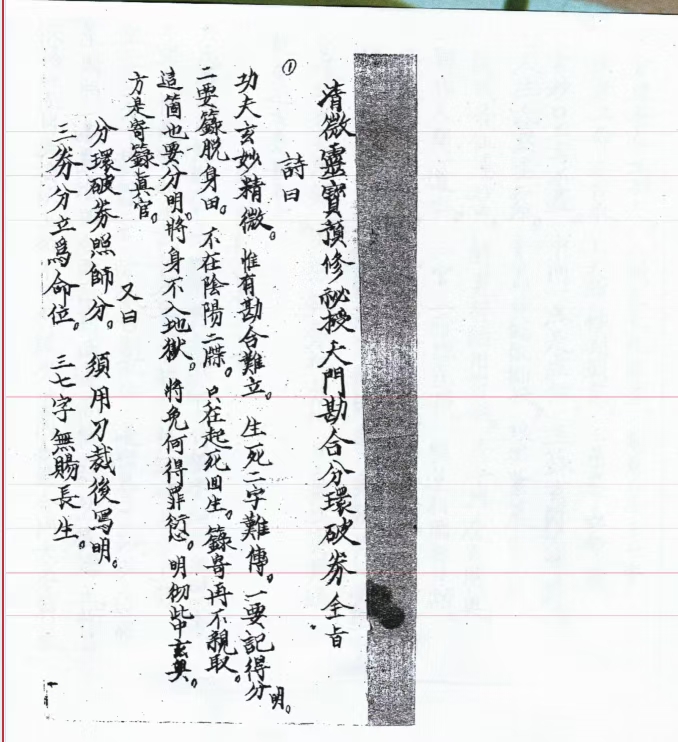 清微靈寶預修祕授天門勘合分環破券全旨
①
詩曰
功夫玄妙精微。惟有勘合難立。生死二字難傳。一要記得分明。
二要籙脫身田。不在陰陽二牒。只在起死回生。籙寄再不親取。
這箇也要分明。將身不入地獄。將免何得罪愆。明彻此中玄奥。
方是寄籙真官。
又曰
分環破券照師分。須用刀裁後寫明。
三券分立爲命位。三七字無賜長生。